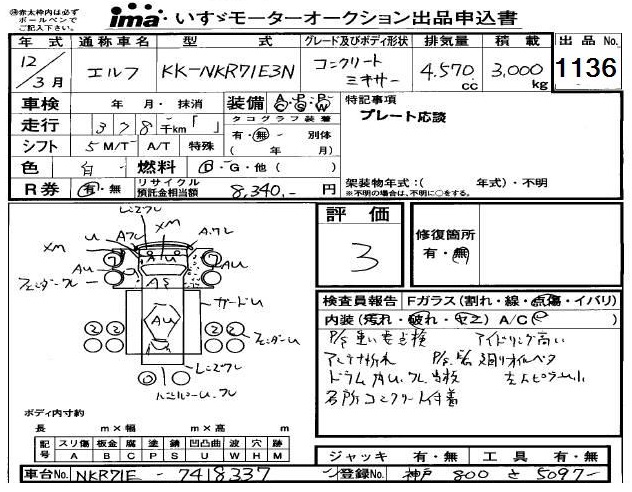 ㊟赤太枠内は必ず
ボールペンで
ご記入下さい。
ima いすゞモーターオークション出品申込書
年式 通称車名 型式 グレード及びボディ形状 排気量 積載 出品No.
12/3月 エルフ KK-NKR71E3N コンクリートミキサー 4.570cc 3,000kg 1136
車検 年 月・抹消 装備 A・P・P G S W 特記事項
プレート応談
走行 378千km「」 タコグラフ装着
有・無・別体
シフト 5M/T A/T 特殊 ( 年 月)
色 白 燃料 D・G・他( )
R券 有・無 リサイクル預託金相当額 8,340.- 円
架装物年式:( 年式)・不明
※不明の場合は、不明に○をする。
レンズワレ
XM
U Aワレ XM A.ワレ
AU U AU
フェンダーワレ
AS
サードU
AU
② ② ② ②
フェンダーU
レンズワレ
評価
3
修復箇所
有・無
検査員報告 Fガラス(割れ・線・点傷・イバリ)
内装(汚れ・破れ・ヤニ) A/C( )
P/S重い要点検 アイドリング高い
アンテナ折れ
各所コンクリート付着
ボディ内寸約
長 m×幅 m×高 m
記号 スリ傷 板金 腐 塗 錆 凹凸曲 波 穴 跡
A B C P S U W H M
ジャッキ 有・無 工具 有・無
車台No. NKR71E - 7418337 登録No. 神戸 800 さ 5097-